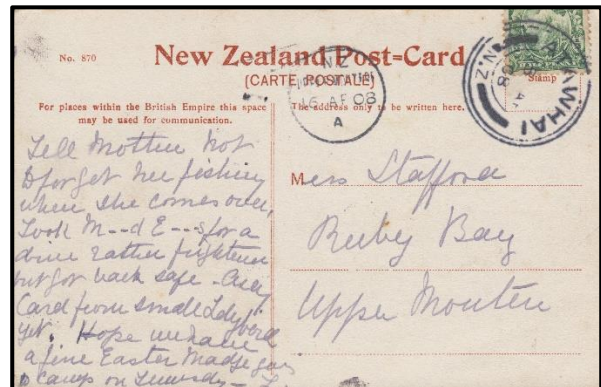 No. 870
New Zealand Post=Card
(CARTE POSTALE)
For places within the British Empire this space
may be used for communication.
The address only to be written here.
Stamp
N.Z
16 AP 08
A
AWHAI
N.Z
Tell Mother not
to forget her fishing
when she comes over,
Took M--d E---s for a
drive rather frightened
but got back safe - Any
Card from small Ladybird
yet. Hope we have
a fine Easter Madge goes
to camp on
Miss Stafford
Ruby Bay
Upper Moutere